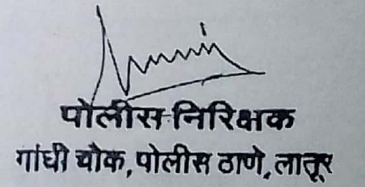 पोलीस निरिक्षक
गांधी चौक, पोलीस ठाणे, लातूर